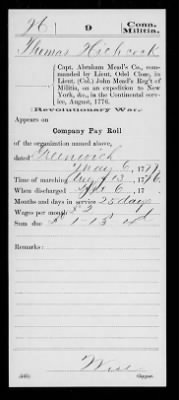 H | 9 | Conn. Militia.
Thomas Hichcock
Capt. Abraham Mead's Co., com-
manded by Lieut. Odel Close, in
Lieut. (Col.) John Mead's Reg't of
Militia, on an expedition to New
York, &c., in the Continental serv-
ice, August, 1776.
Revolutionary War.
Appears on
Company Pay Roll
of the organization named above,
dated Greenwich
May 6, 1777
Time of marching Aug 13, 1776.
When discharged Sept 6, 17
Months and days in service 25 days
Wages per month £2
Sum due £1-13s 4d
Remarks:
Copyist.